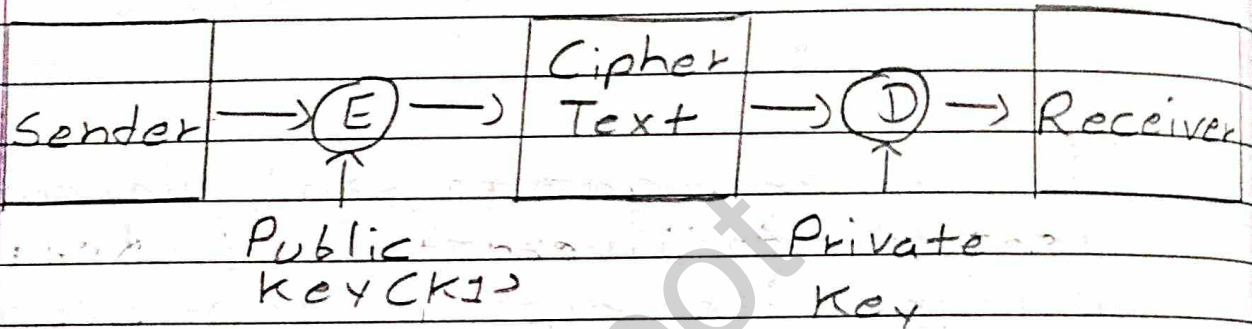 Sender
E
Cipher
Text
D
Receiver
Public
Key (K1)
Private
Key